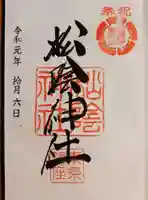 奉祝
松陰神社
松陰神社
東京
令和元年 拾月六日